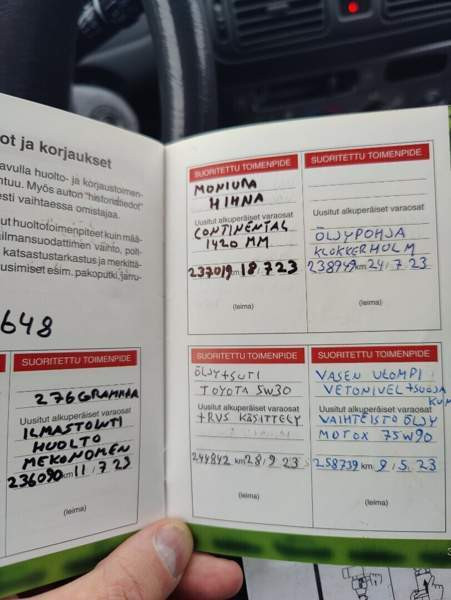 ot ja korjaukset
avulla huolto- ja korjaustoimen-
ntuu. Myös auton "historiatiedot"
esti vaihtaessa omistajaa.
ut huoltotoimenpiteet kuin mää-
ilmansuodattimen vaihto, polt-
katsastustarkastus ja merkittä-
usimiset esim. pakoputki, jarru-
648
SUORITETTU TOIMENPIDE
276 GRAMMAA
Uusitut alkuperäiset varaosat
ILMASTOINTI
HUOLTO
MEKONOMEN
236090 km 11 / 7 23
(leima)
SUORITETTU TOIMENPIDE
MONIURA
HIHNA
Uusitut alkuperäiset varaosat
CONTINENTAL
1420 MM
237019 km 18 / 7 23
(leima)
SUORITETTU TOIMENPIDE
Uusitut alkuperäiset varaosat
ÖLJYPOHJA
KLOKKERHOLM
238949 km 24 / 7 23
(leima)
SUORITETTU TOIMENPIDE
ÖLJY + SUTI
TOYOTA 5W30
Uusitut alkuperäiset varaosat
+ RVS KÄSITTELY
244842 km 28 / 9 23
(leima)
SUORITETTU TOIMENPIDE
VASEN ULOMPI
VETONIVEL + SUOJA
KUM
Uusitut alkuperäiset varaosat
VAIHTEISTO ÖLJY
MOTOX 75W90
258739 km 9 / 5 23
(leima)